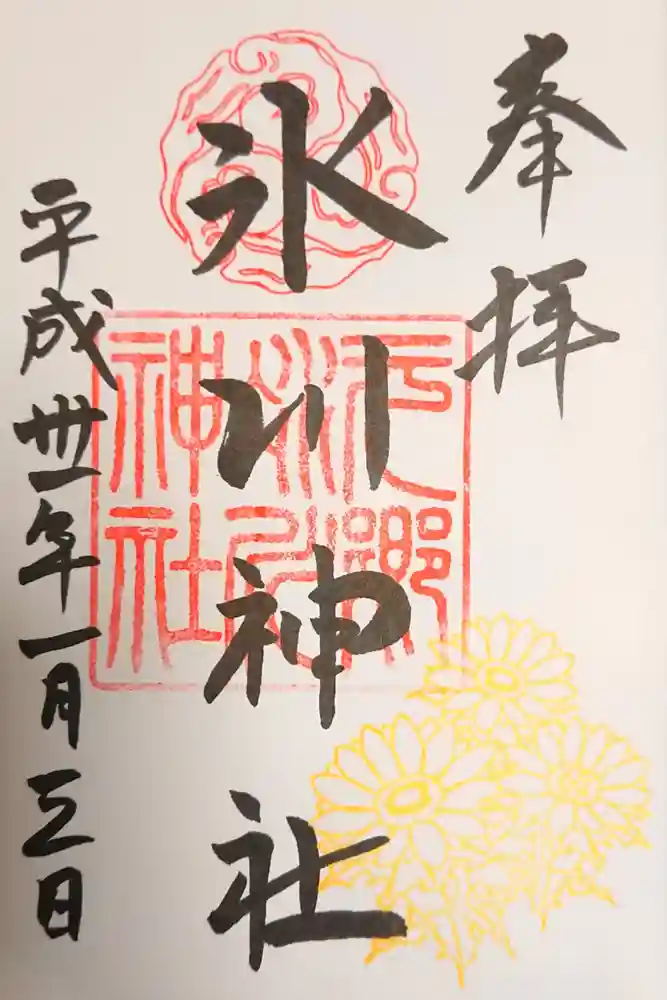 奉拝
氷川神社
元郷
氷川
神社
平成卅一年一月三日